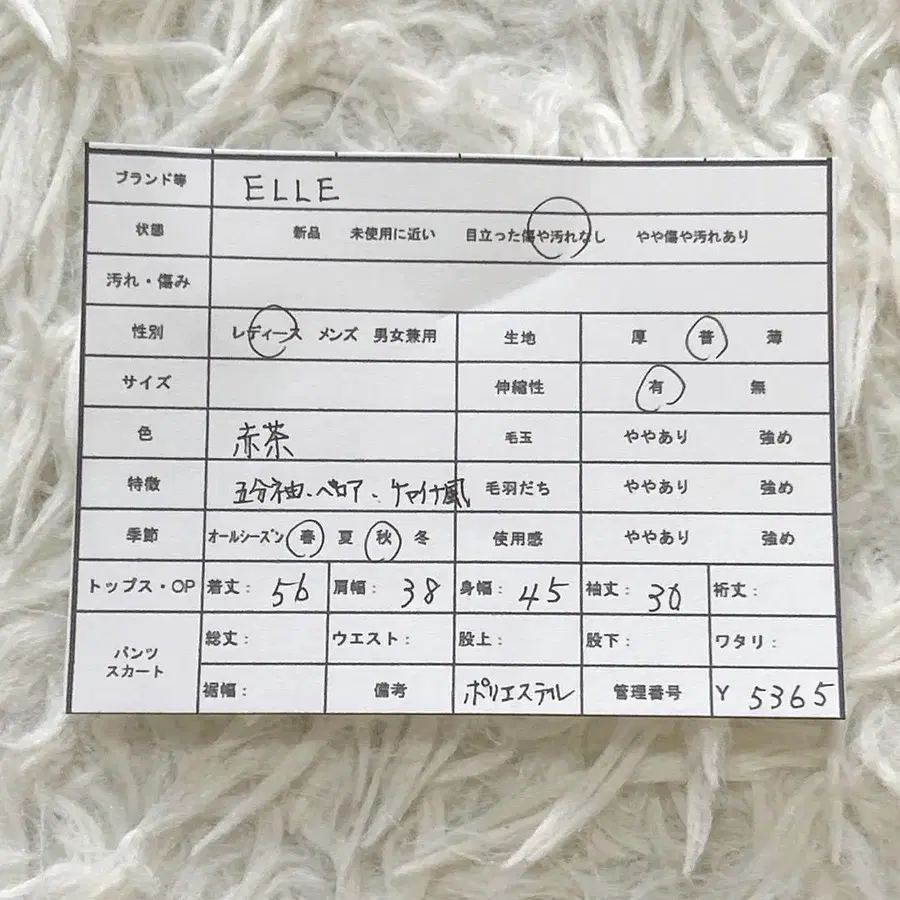 ブランド等 ELLE
状態 新品 未使用に近い 目立った傷や汚れなし やや傷や汚れあり
汚れ・傷み
性別 レディース メンズ 男女兼用 生地 厚 普 薄
サイズ 伸縮性 有 無
色 赤茶 毛玉 ややあり 強め
特徴 五分袖・ベロア・ 毛羽だち ややあり 強め
季節 オールシーズン 春 夏 秋 冬 使用感 ややあり 強め
トップス・OP 着丈: 56 肩幅: 38 身幅: 45 袖丈: 30 裄丈:
パンツ スカート 総丈: ウエスト: 股上: 股下: ワタリ:
裾幅: 備考 ポリエステル 管理番号 Y 5365